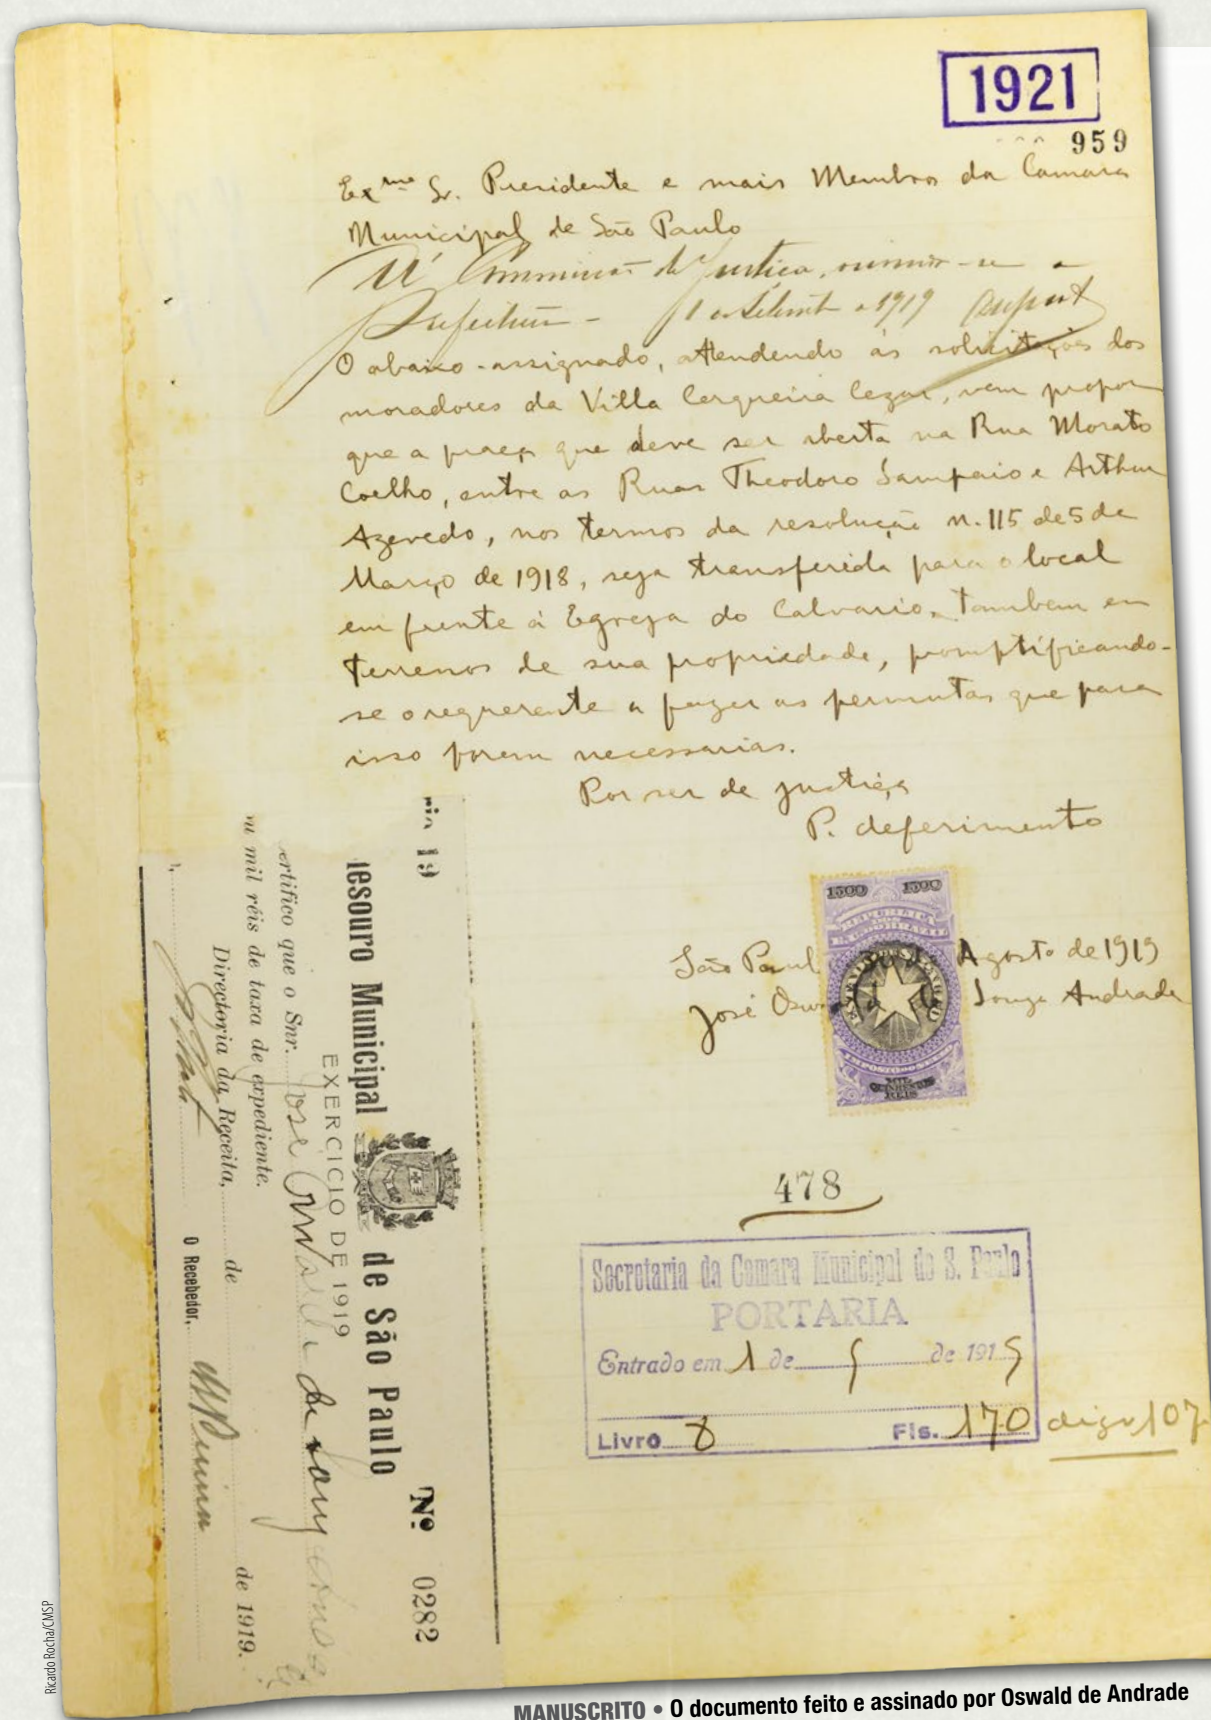 1921
959
Exmo Sr. Presidente e mais Membros da Camara
Municipal de São Paulo
Á Commissão de Justiça,
Prefeitura - 1 de 1919
O abaixo-assignado, attendendo ás solicitações dos
moradores da Villa Cerqueira Cezar, vem propor
que a praça que deve ser aberta na Rua Morato
Coelho, entre as Ruas Theodoro Sampaio e Arthur
Azevedo, nos termos da resolução n. 115 de 5 de
Março de 1918, seja transferida para o local
em frente á Egreja do Calvario, tambem em
terrenos de sua propriedade, promptificando-
se o requerente a fazer as permutas que para
isso forem necessarias.
Por ser de justiça
P. deferimento
1500 1500
REPUBLICA
São Paul Agosto de 1919
José Osw Souza Andrade
MIL
REIS
478
Secretaria da Camara Municipal de S. Paulo
PORTARIA
Entrado em 1 de 9 de 1919
Livro 8 Fls. 170 digo 107
19
Tesouro Municipal de São Paulo Nº 0282
EXERCICIO DE 1919
ertifico que o Snr. José Oswald de Souza
mil réis de taxa de expediente.
Directoria da Receita, de de 1919.
O Recebedor,
Ricardo Rocha/CMSP
MANUSCRITO • O documento feito e assinado por Oswald de Andrade